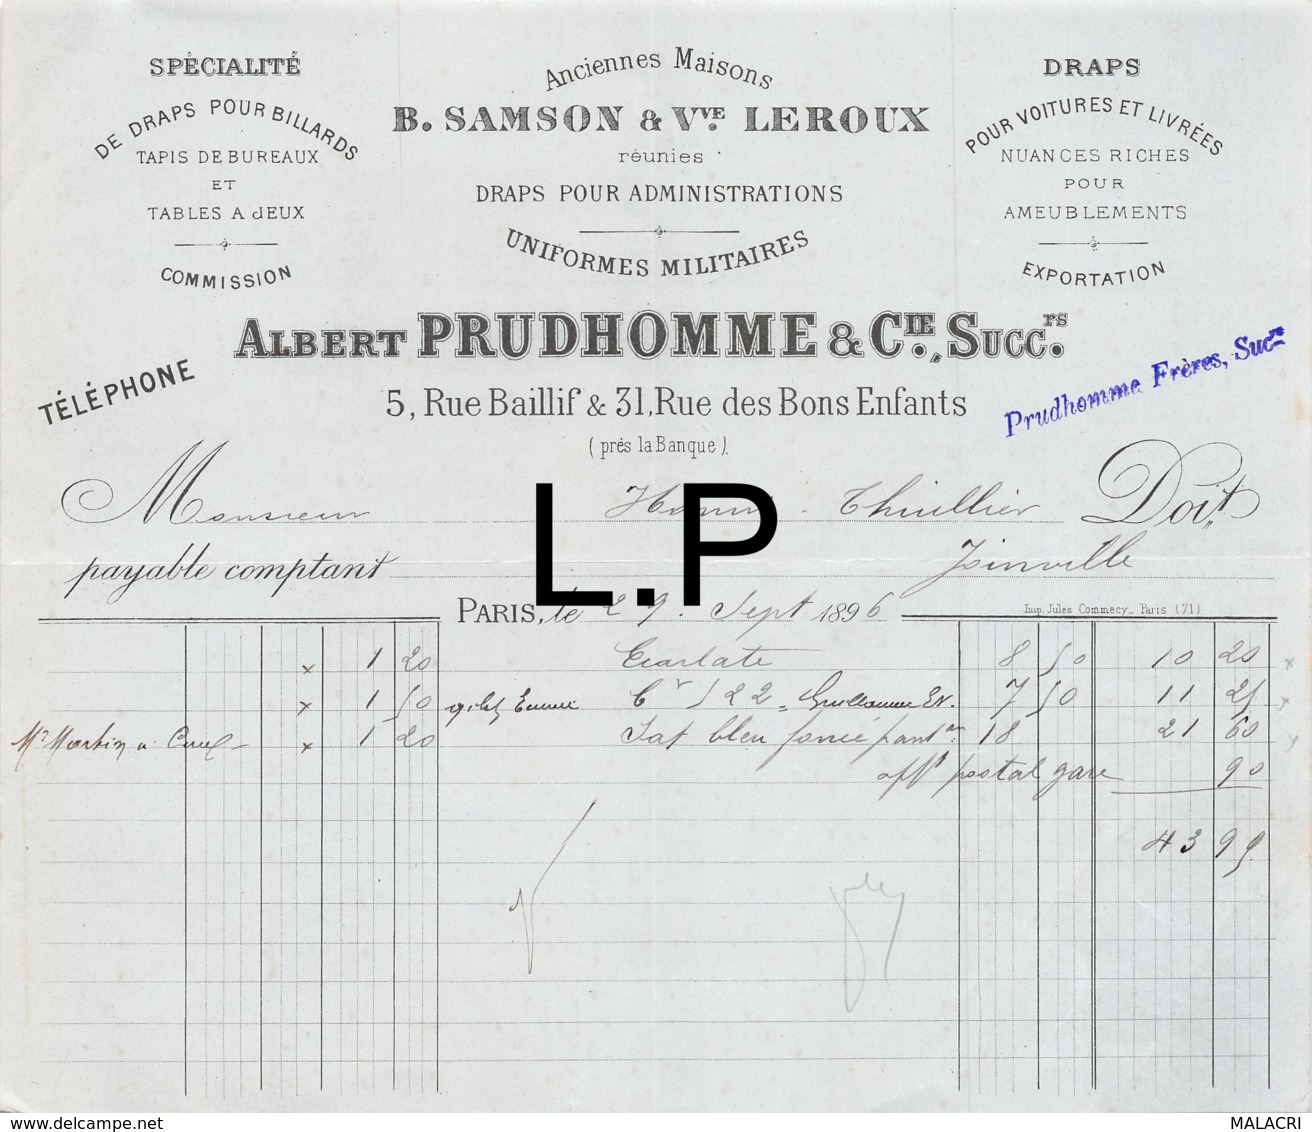 SPÉCIALITÉ
DE DRAPS POUR BILLARDS
TAPIS DE BUREAUX
ET
TABLES A JEUX
COMMISSION
Anciennes Maisons
B. SAMSON & VVE. LEROUX
réunies
DRAPS POUR ADMINISTRATIONS
UNIFORMES MILITAIRES
DRAPS
POUR VOITURES ET LIVRÉES
NUANCES RICHES
POUR
AMEUBLEMENTS
EXPORTATION
ALBERT PRUDHOMME & CIE., SUCC.rs
TÉLÉPHONE
Prudhomme Frères, Sucrs
5, Rue Baillif & 31, Rue des Bons Enfants
(près la Banque).
Monsieur Thuillier Doit,
payable comptant Joinville
L.P
PARIS, le 29 Sept 1896
Imp. Jules Commecy _ Paris (71)
x 1 20 Ecarlate 8 50 10 20 x
x 1 50 522 7 50 11 25 x
x 1 20 bleu foncé 18 21 60
afft postal gare 90
43 95
delcampe.net
MALACRI